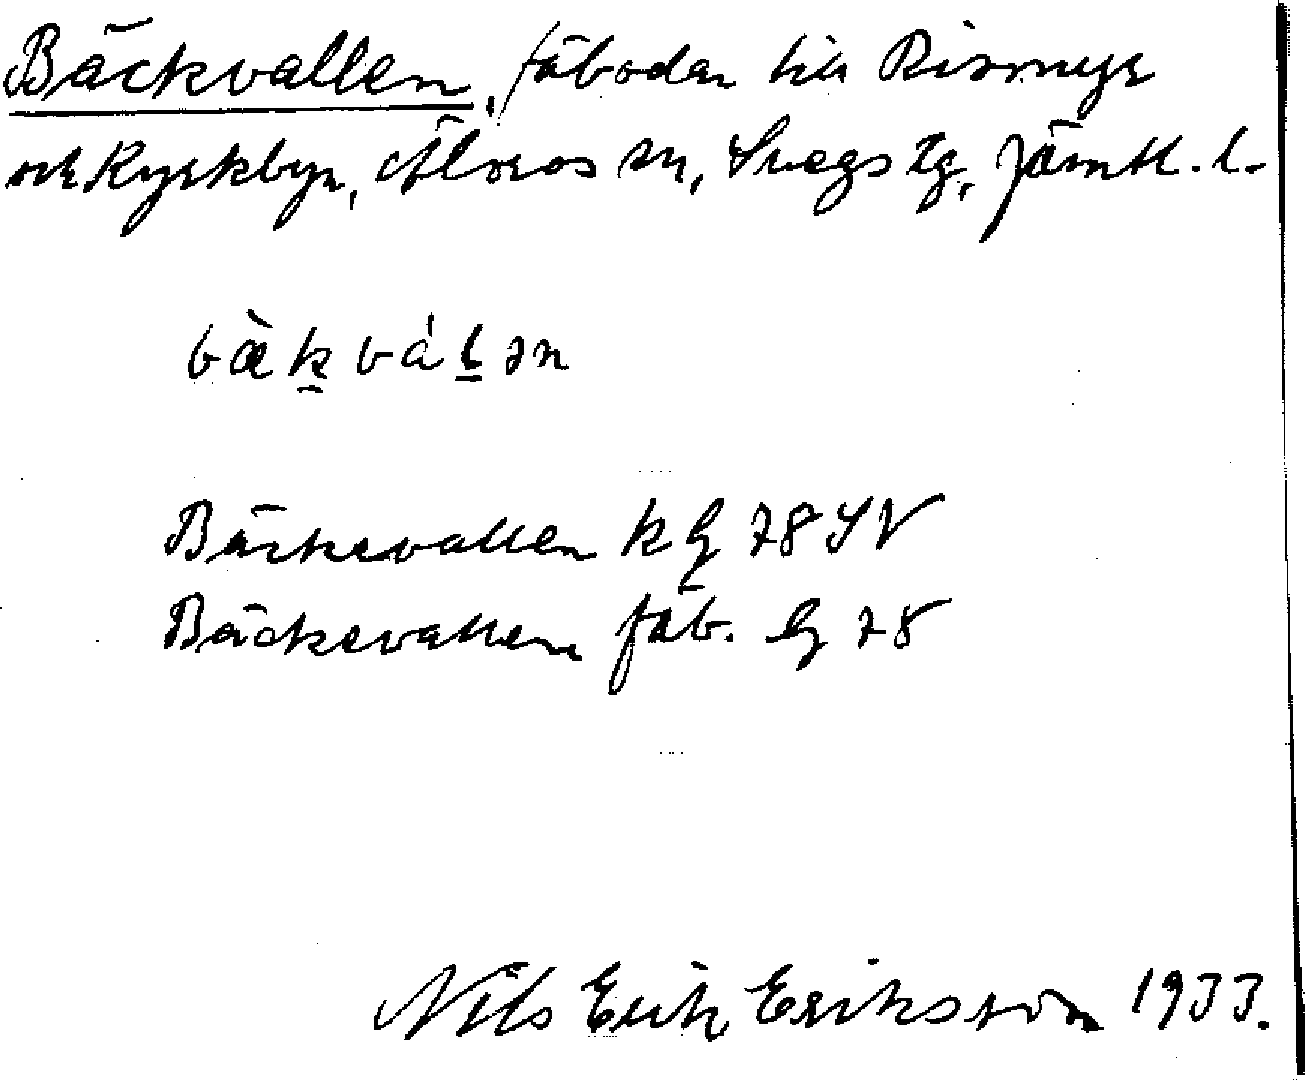 Bäckvallen, fäbodar till Rismyr
och Kyrkbyn, Älvros sn, Svegs tg, Jämtl. l.
bæ̀k̲vál̲ən
Bäckevallen k G 78 SV
Bäckevallen fäb. G 78
Nils Erik Eriksson 1933.